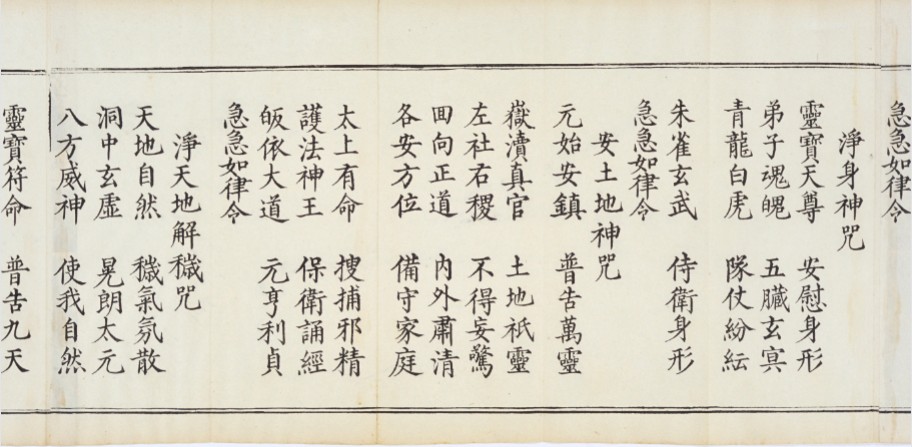 急急如律令
淨身神咒
靈寶天尊 安慰身形
弟子魂魄 五臟玄冥
青龍白虎 隊仗紛紜
朱雀玄武 侍衛身形
急急如律令
安土地神咒
元始安鎮 普告萬靈
嶽瀆真官 土地祇靈
左社右稷 不得妄驚
回向正道 內外肅清
各安方位 備守家庭
太上有命 搜捕邪精
護法神王 保衛誦經
皈依大道 元亨利貞
急急如律令
淨天地解穢咒
天地自然 穢氣氛散
洞中玄虛 晃朗太元
八方威神 使我自然
靈寶符命 普告九天